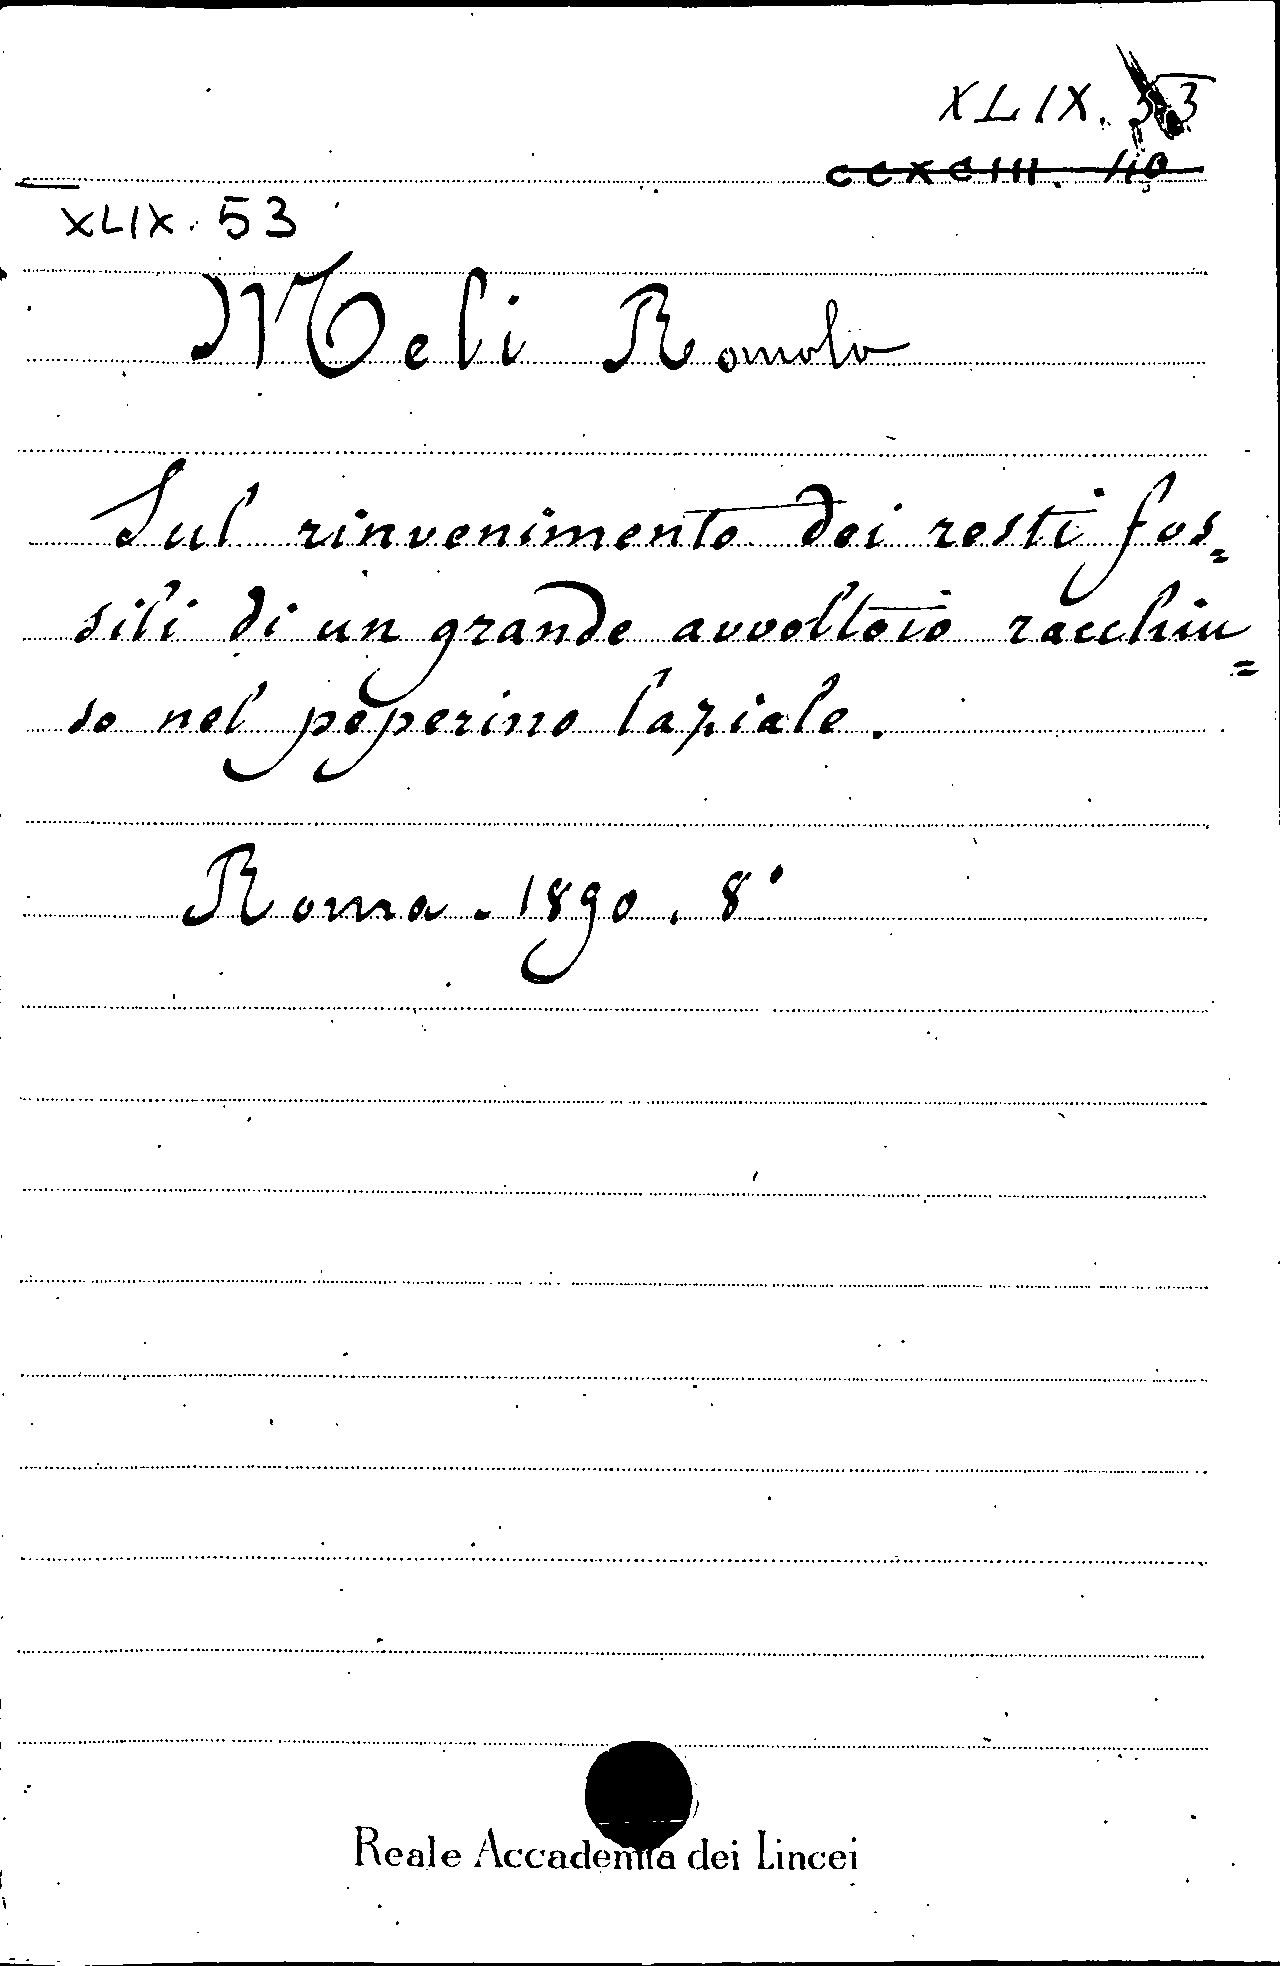 XLIX. 53
CCXCIII. 110
XLIX. 53
Meli Romolo
Sul rinvenimento dei resti fos=
sili di un grande avvoltoio racchiu=
so nel peperino laziale.
Roma. 1890. 8°
Reale Accademia dei Lincei